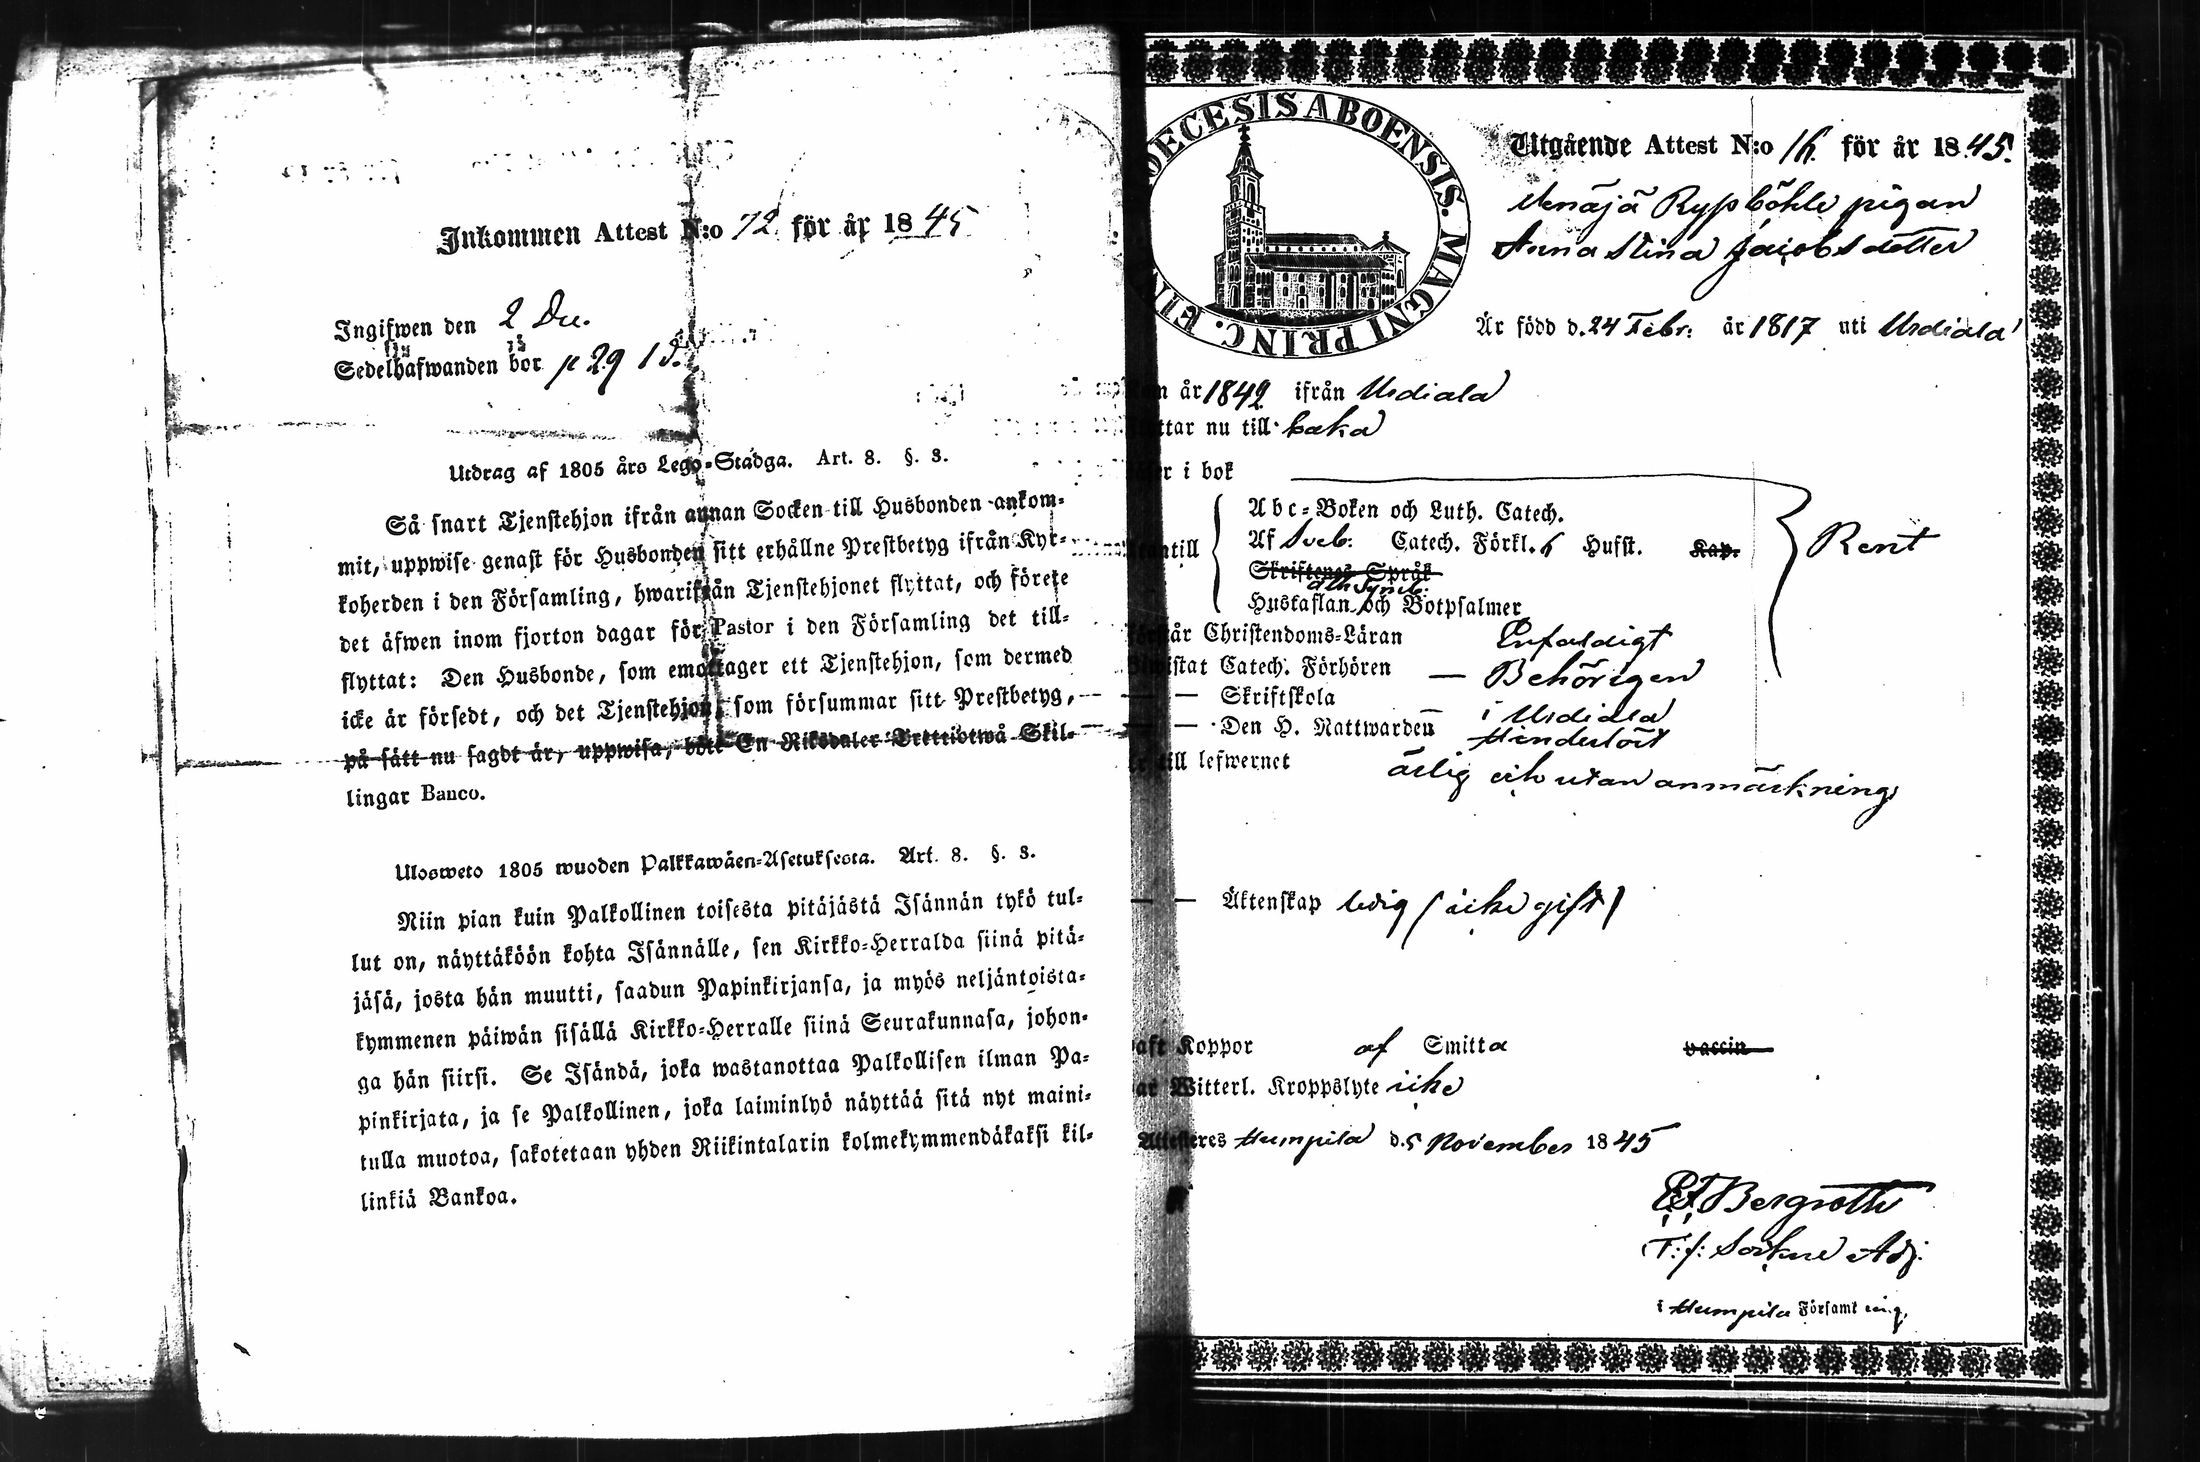 Inkommen Attest N:o 72 för år 1845
Ingifwen den 2 Dec.
Sedelhafwanden bor p 29 13.
Utdrag af 1805 års Lego-Stadga. Art. 8. §. 3.
Så snart Tjenstehjon ifrån annan Socken till Husbonden ankom-
mit, uppwise genast för Husbonden sitt erhållne Prestbetyg ifrån Kyr-
koherden i den Församling, hwarifrån Tjenstehjonet flyttat, och förete
det äfwen inom fjorton dagar för Pastor i den Församling det till-
flyttat: Den Husbonde, som emottager ett Tjenstehjon, som dermed
icke är försedt, och det Tjenstehjon, som försummar sitt Prestbetyg,
på sätt nu sagdt är, uppwisa, böte En Riksdaler Trettiotwå Skil-
lingar Banco.
Ulosweto 1805 wuoden Palkkawäen-Asetuksesta. Art. 8. §. 3.
Niin pian kuin Palkollinen toisesta pitäjästä Isännän tykö tul-
lut on, näyttäköön kohta Isännälle, sen Kirkko-Herralda siinä pitä-
jäsä, josta hän muutti, saadun Papinkirjansa, ja myös neljäntoista-
kymmenen päiwän sisällä Kirkko-Herralle siinä Seurakunnasa, johon-
ga hän siirsi. Se Isändä, joka wastanottaa Palkollisen ilman Pa-
pinkirjata, ja se Palkollinen, joka laiminlyö näyttää sitä nyt maini-
tulla muotoa, sakotetaan yhden Riikintalarin kolmekymmendäkaksi kil-
linkiä Bankoa.
DECESIS ABOENSIS. MAGNI PRINC.
Utgående Attest N:o 16 för år 1845.
pigan
Anna Stina Jacobsdotter
Är född d. 24 Febr: år 1817 uti Urdiala
år 1842 ifrån Urdiala
ttar nu till
r i bok
Abc-Boken och Luth. Catech.
Af Sveb: Catech. Förkl. 6 Husst. Kap. Rent
antill
Skriftenes Språk
Ath Symb:
Hustaflan och Botpsalmer
står Christendoms-Läran Enfaldigt
istat Catech. Förhören — Behörigen
— — Skriftskola i Urdiala
— — Den H. Nattwarden Hinderlöst
till lefwernet ärlig och utan anmärkning
— — Äktenskap ledig (icke gift)
aft Koppor af Smitta vaccin
ar Witterl. Kroppslyte icke
Attesteres Humpila d. 5 November 1845
Bergroth
T: f: Sockne Adj.
i Humpila Församling,